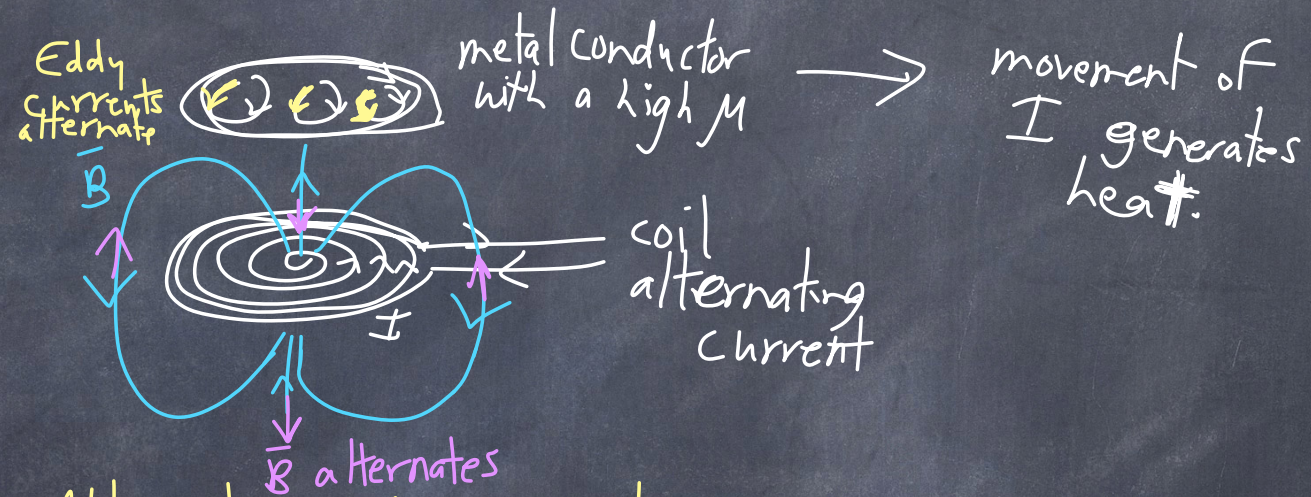 Eddy
currents
alternate
B
metal conductor
with a high μ
movement of
I generates
heat.
coil
alternating
current
I
B alternates